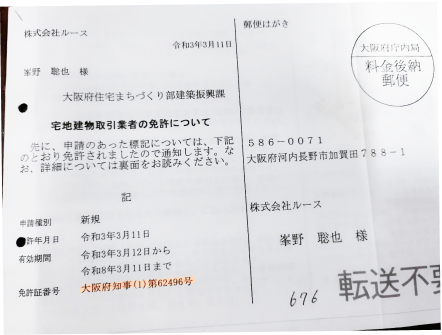 株式会社ルース
令和3年3月11日
峯野 聡也 様
大阪府住宅まちづくり部建築振興課
宅地建物取引業者の免許について
先に、申請のあった標記については、下記
のとおり免許されましたので通知します。な
お、詳細については裏面をお読みください。
記
申請種別 新規
許年月日 令和3年3月11日
有効期間 令和3年3月12日から
令和8年3月11日まで
免許証番号 大阪府知事(1)第62496号
郵便はがき
大阪府庁内局
料金後納
郵便
586-0071
大阪府河内長野市加賀田788-1
株式会社ルース
峯野 聡也 様
676
転送不要